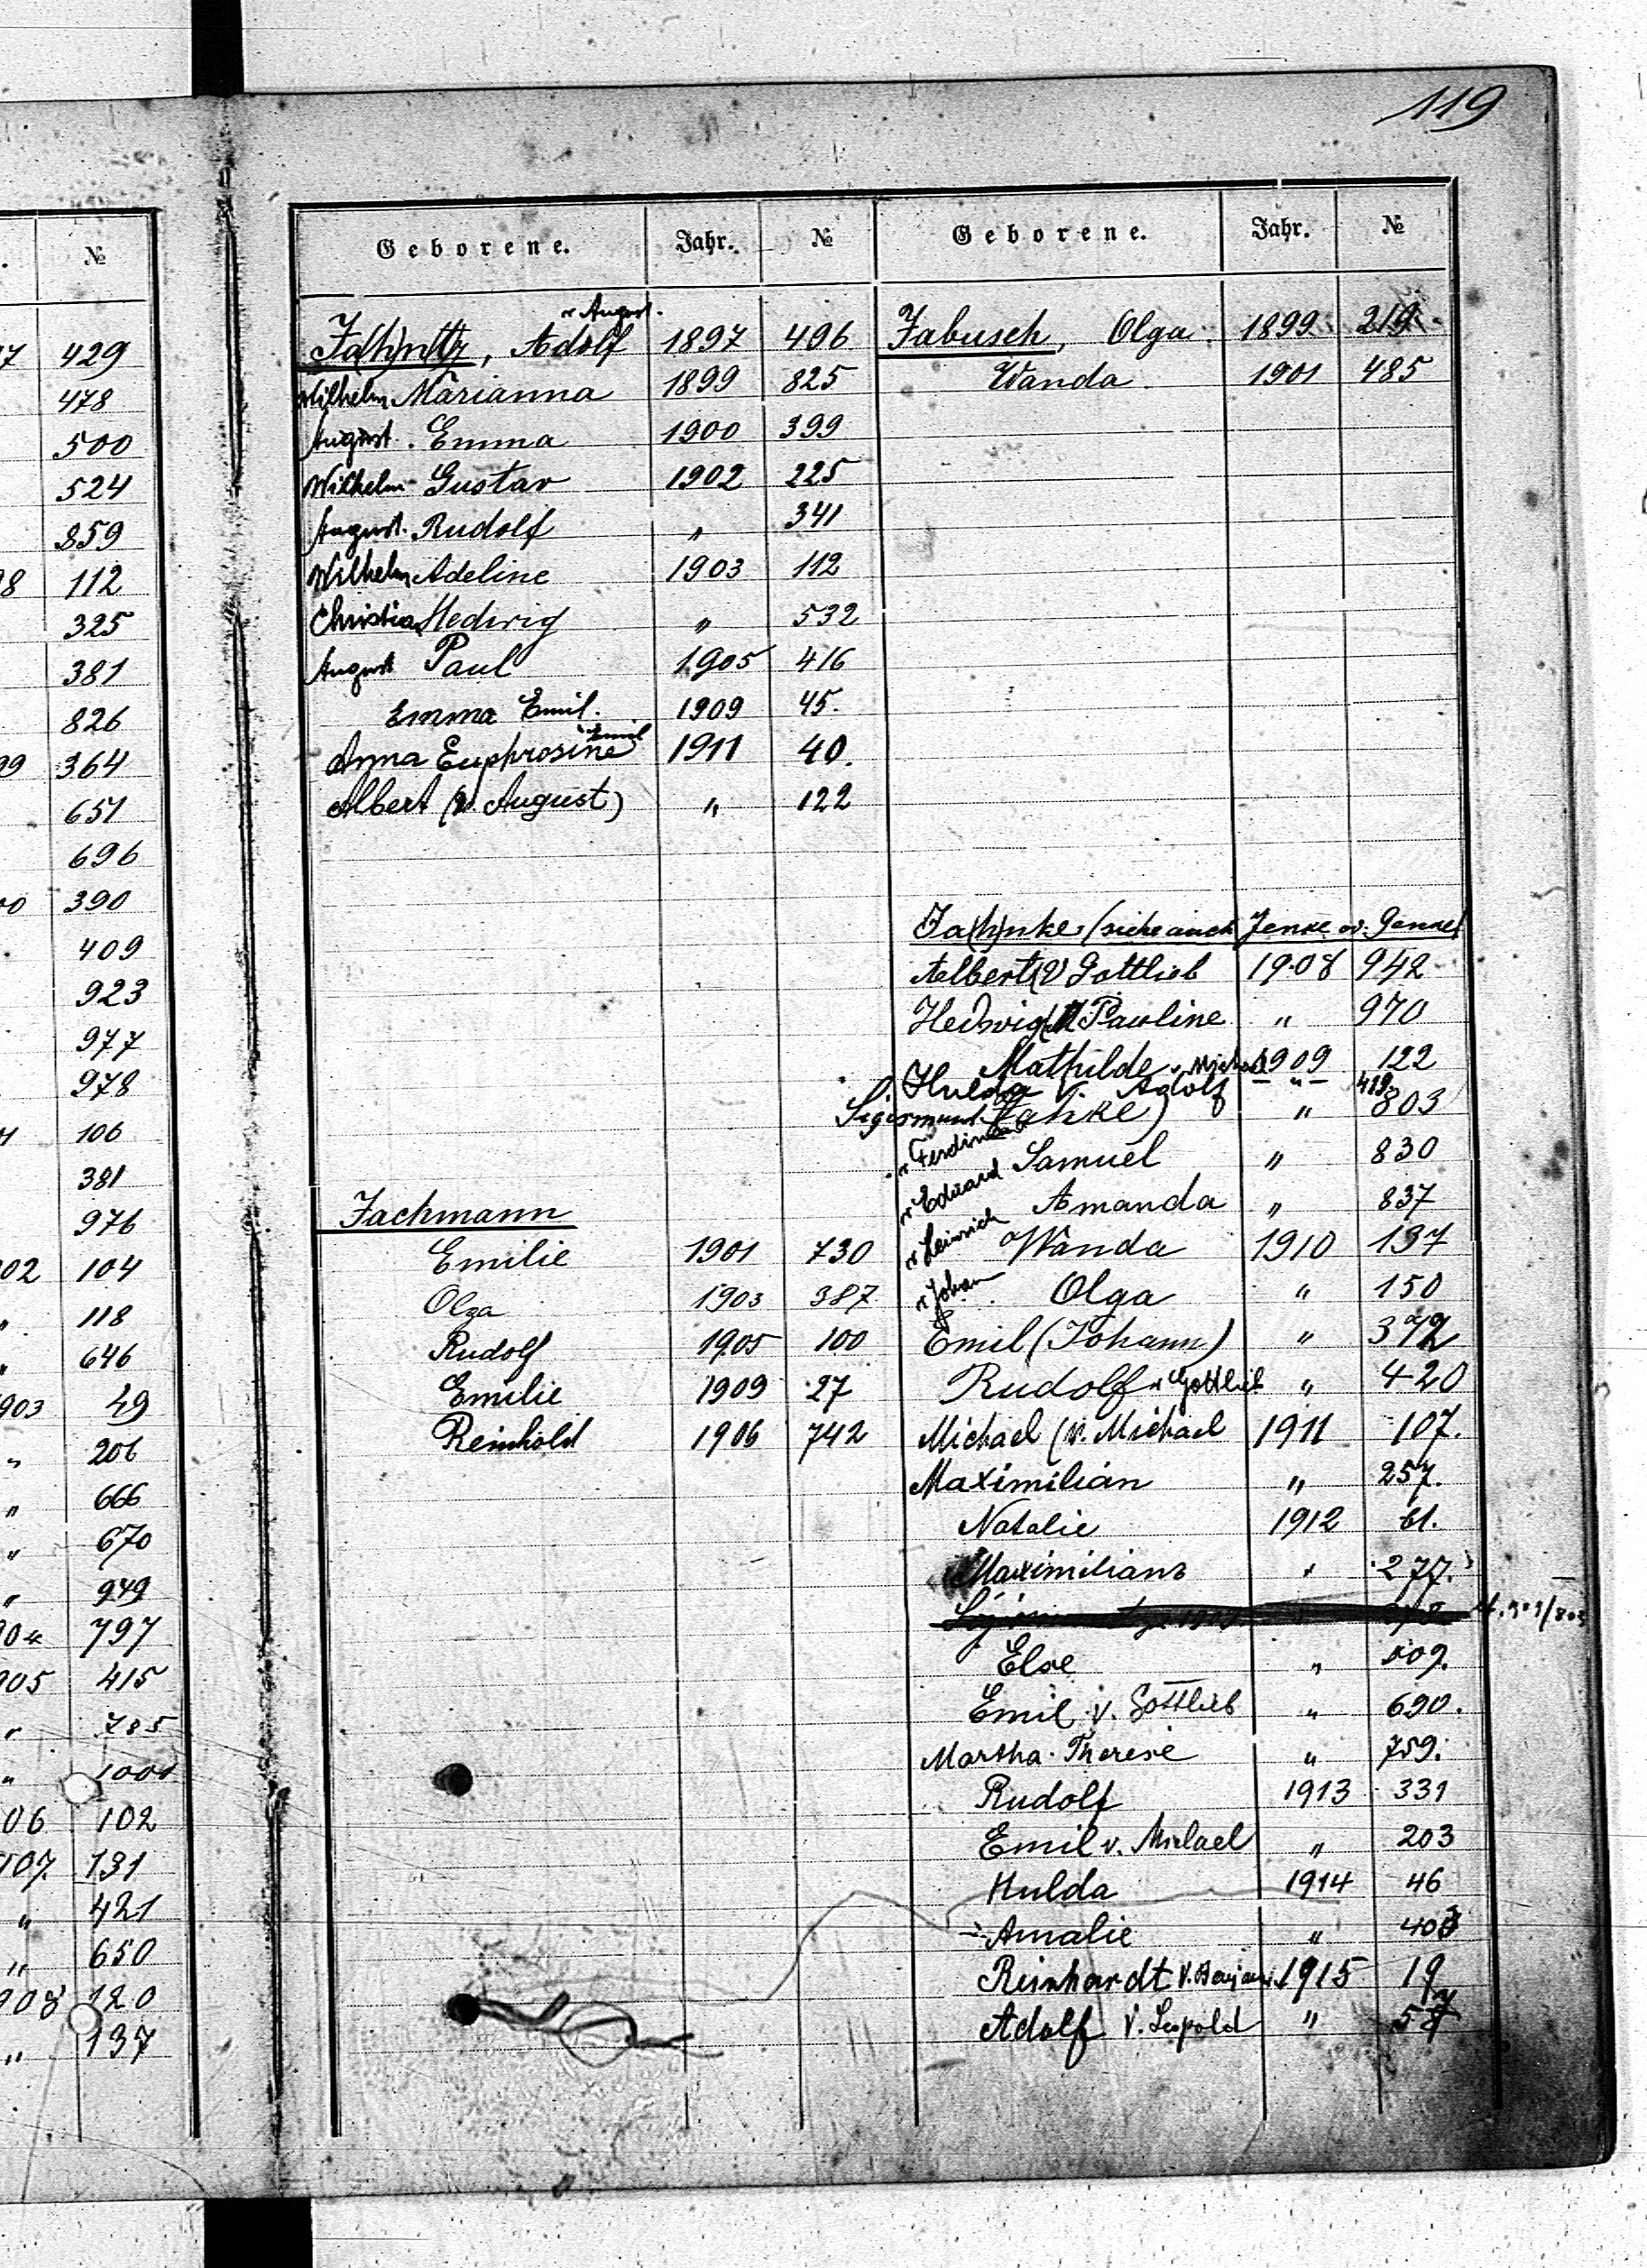 119
№
7 429
478
500
524
859
98 112
325
381
826
99 364
651
696
00 390
409
923
977
978
106
381
976
02 104
" 118
" 646
903 49
" 206
" 666
" 670
" 949
797
905 415
" 785
" 1000
06 102
107 131
" 421
" 650
908 120
" 137
Geborene. Jahr. №
v August.
Ja(h)n(t)z, Adolf 1897 496
Wilhelm Marianna 1899 825
August. Emma 1900 399
Wilhelm Gustav 1902 225
August. Rudolf " 341
Wilhelm Adeline 1903 112
Christian Hedwig " 532
August Paul 1905 416
Emma Emil. 1909 45.
Anna Euphrosine v Emil 1911 40.
Albert (v. August) " 122
Jachmann
Emilie 1901 730
Olga 1903 387
Rudolf 1905 100
Emilie 1909 27
Reinhold 1906 742
Geborene. Jahr. №
Jabusch, Olga. 1899 219
Wanda. 1901 485
Ja(h)nke (siehe auch Jenke
Albert (v Gottlieb 1908 942
Hedwig Pauline " 970
Mathilde v. Michael 1909 122
Hulda v. Adolf " 419
Sigismund (Jahke) " 803
v Ferdinand Samuel " 830
v Eduard Amanda " 837
v Heinrich Wanda 1910 137
v Johan Olga " 150
Emil (Johann) " 372
Rudolf v Gottlieb " 420
Michael (v. Michael 1911 107.
Maximilian " 257.
Natalie 1912 61.
Maximiliane " 277.
1909/803
Else " 509.
Emil v. Gottlieb " 690.
Martha Therese " 759.
Rudolf 1913 331
Emil v. Michael " 203
Hulda 1914 46
Amalie " 403
Reinhardt v. Benjamin 1915 19
Adolf v. Leopold " 57